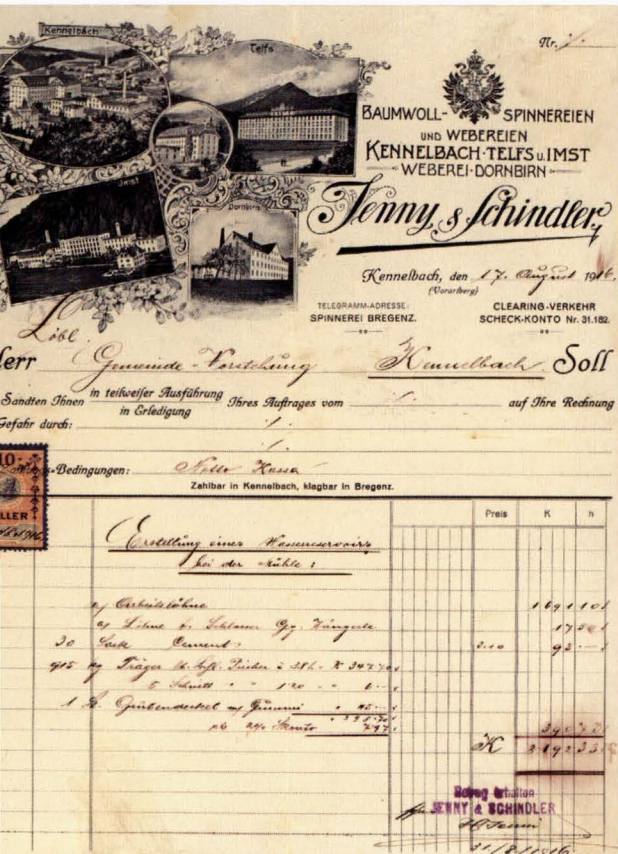 Kennelbach
Telfs
Imst
Dornbirn
Nr.
BAUMWOLL- SPINNEREIEN
UND WEBEREIEN
KENNELBACH·TELFS U. IMST
WEBEREI·DORNBIRN
Jenny & Schindler,
Kennelbach, den 17. August 1916.
(Vorarlberg)
TELEGRAMM-ADRESSE:
SPINNEREI BREGENZ.
CLEARING-VERKEHR
SCHECK-KONTO Nr. 31.182.
Löbl.
Herr Gemeinde-Vorstehung Kennelbach. Soll
Sandten Ihnen in teilweiser Ausführung
in Erledigung Ihres Auftrages vom auf Ihre Rechnung
Gefahr durch:
-Bedingungen: Netto Kassa
Zahlbar in Kennelbach, klagbar in Bregenz.
10
LLER
Preis K h
Erstellung eines Wasserreservoirs
bei der Mühle:
Arbeitslöhne
Löhne Schlosser
30 Sack Cement 3.10 93.—
915 kg Träger K 347.70
5 Schnitt 1.20 6.—
1 Grubendeckel Gummi 45.—
ab 2% Skonto 7.97
K
Betrag erhalten
JENNY & SCHINDLER
31/8/1916